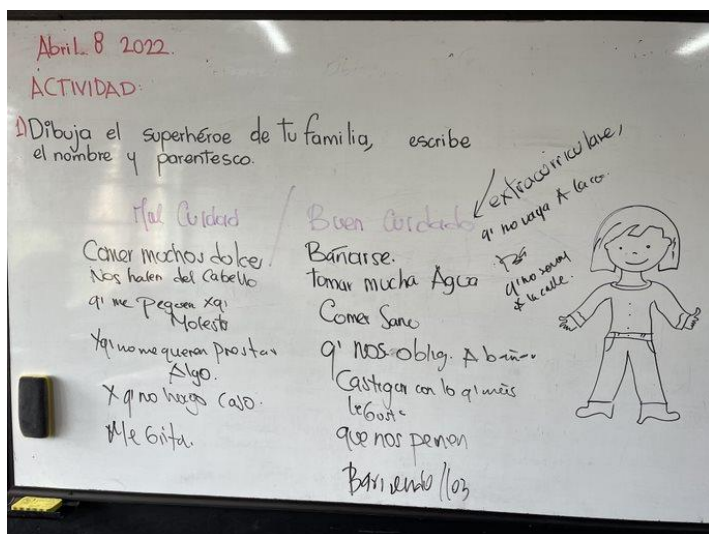 Abril 8 2022.
ACTIVIDAD:
1) Dibuja el superhéroe de tu familia, escribe
el nombre y parentesco.
Mal Cuidad / Buen Cuidado
Comer muchos dolce
Nos halen del Cabello
q' me peguen xq'
Molesto
Yq' no me queren prestar
Algo.
X q' no hago caso.
Me Grita.
Bañarse.
tomar mucha Agua
Comer Sano
q' nos oblig. A bañar
Castigar con lo q' más
le Gusta
que nos penen
Barriendo
extracurriculare,
q' no vaya A la
q' no
la calle.